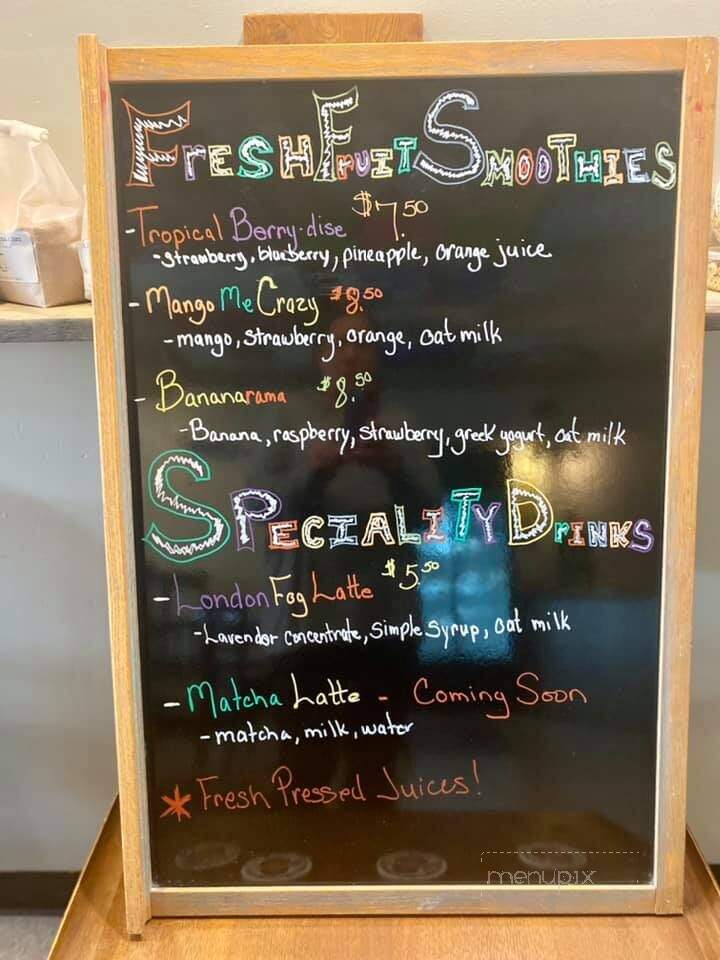 FRESH FRUIT SMOOTHIES
$7.50
- Tropical Berry-dise
- strawberry, blueberry, pineapple, orange juice
- Mango Me Crazy $8.50
- mango, strawberry, orange, oat milk
- Bananarama $8.50
- Banana, raspberry, strawberry, greek yogurt, oat milk
SPECIALITY DRINKS
- London Fog Latte $5.50
- Lavendor concentrate, simple syrup, oat milk
- Matcha Latte - Coming Soon
- matcha, milk, water
* Fresh Pressed Juices!
menupix